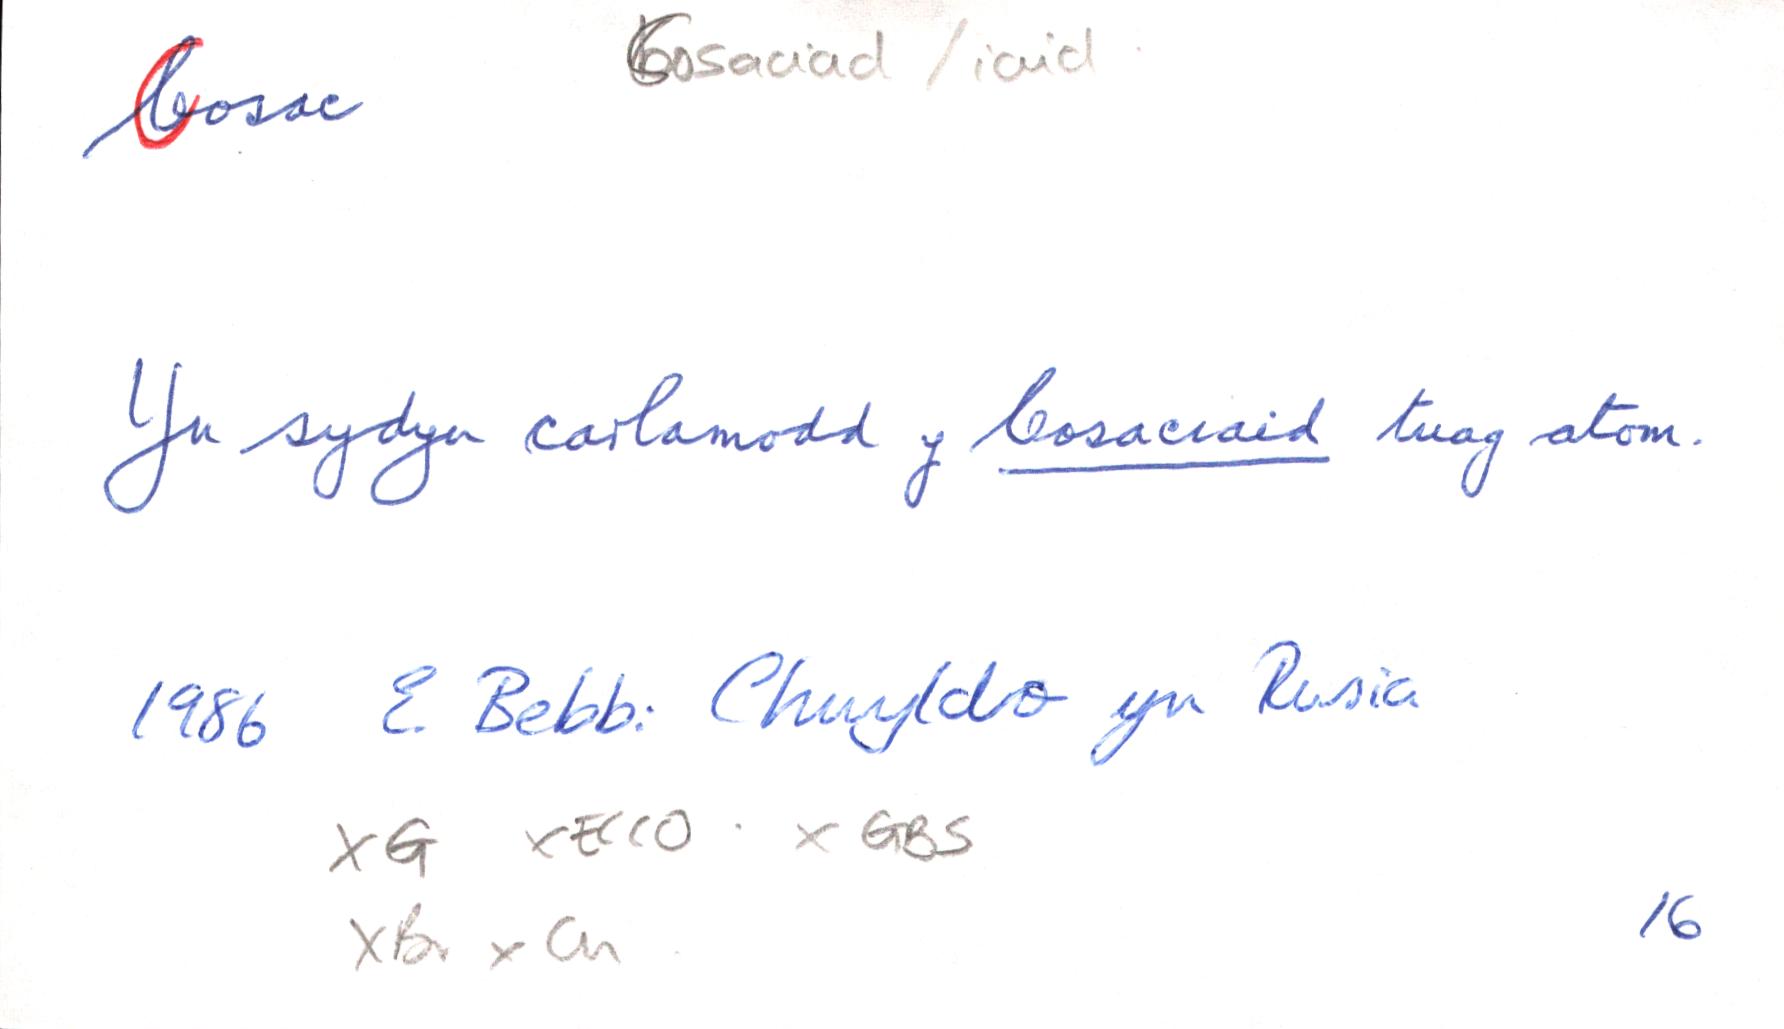 Cosaciad / iaid
Cosac
Yn sydyn carlamodd y Cosaciaid tuag atom.
1986 E. Bebb: Chwyldro yn Rusia
XG XECCO · X GBS
XBr x Cn
16